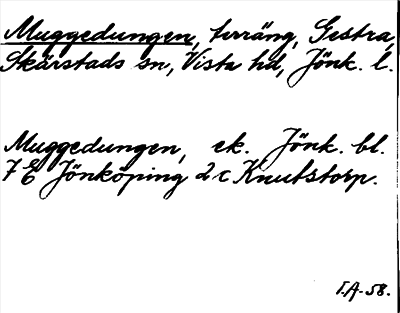 Muggedungen, terräng, Gestra,
Skärstads sn, Vista hd, Jönk. l.
Muggedungen, ek. Jönk. bl.
7E Jönköping 2c Knutstorp.
I.A-58.